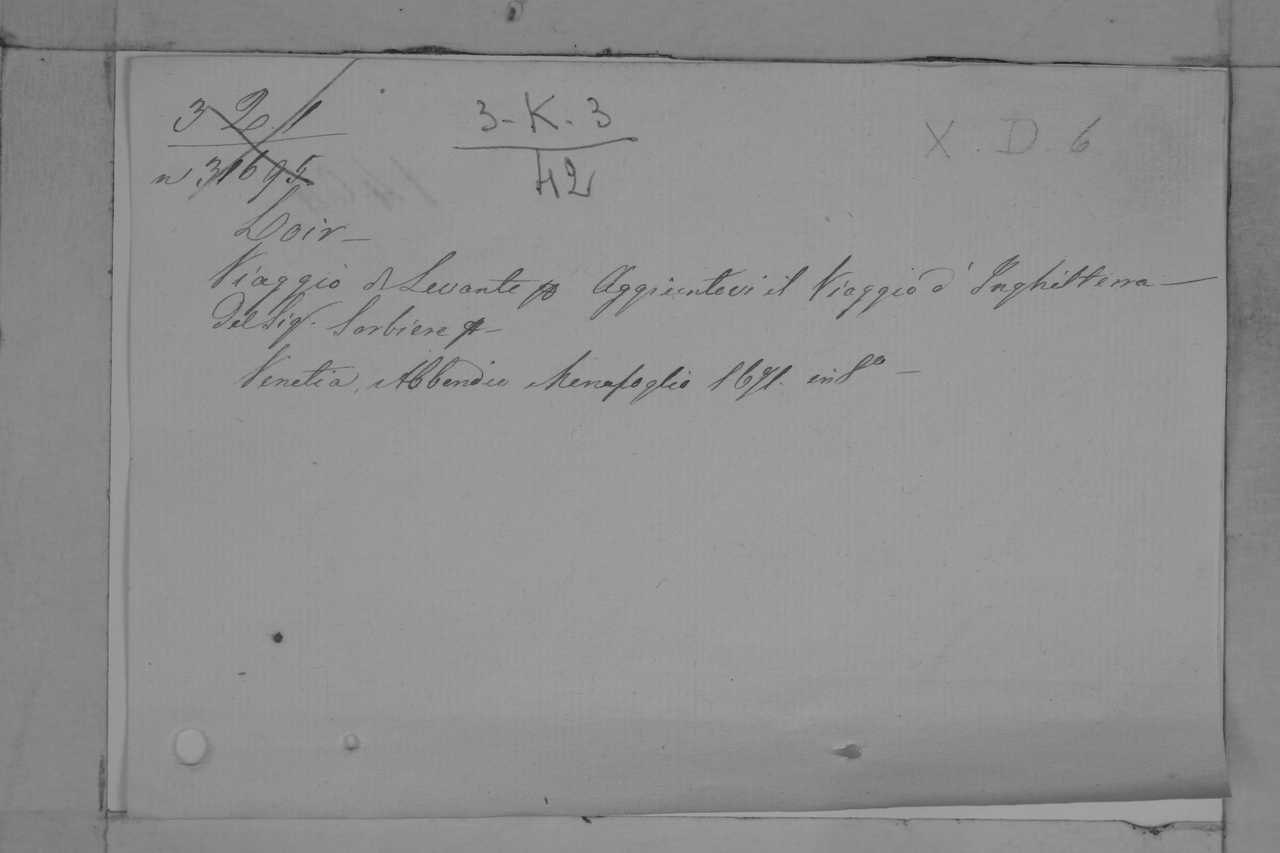 3 2 1
n 31695
3-K-3
42
X. D. 6
Loir —
Viaggio di Levante Aggiuntovi il Viaggio d'Inghilterra —
del Sig. Sorbiere —
Venetia, Abbondio Menafoglio 1671. in 8º —